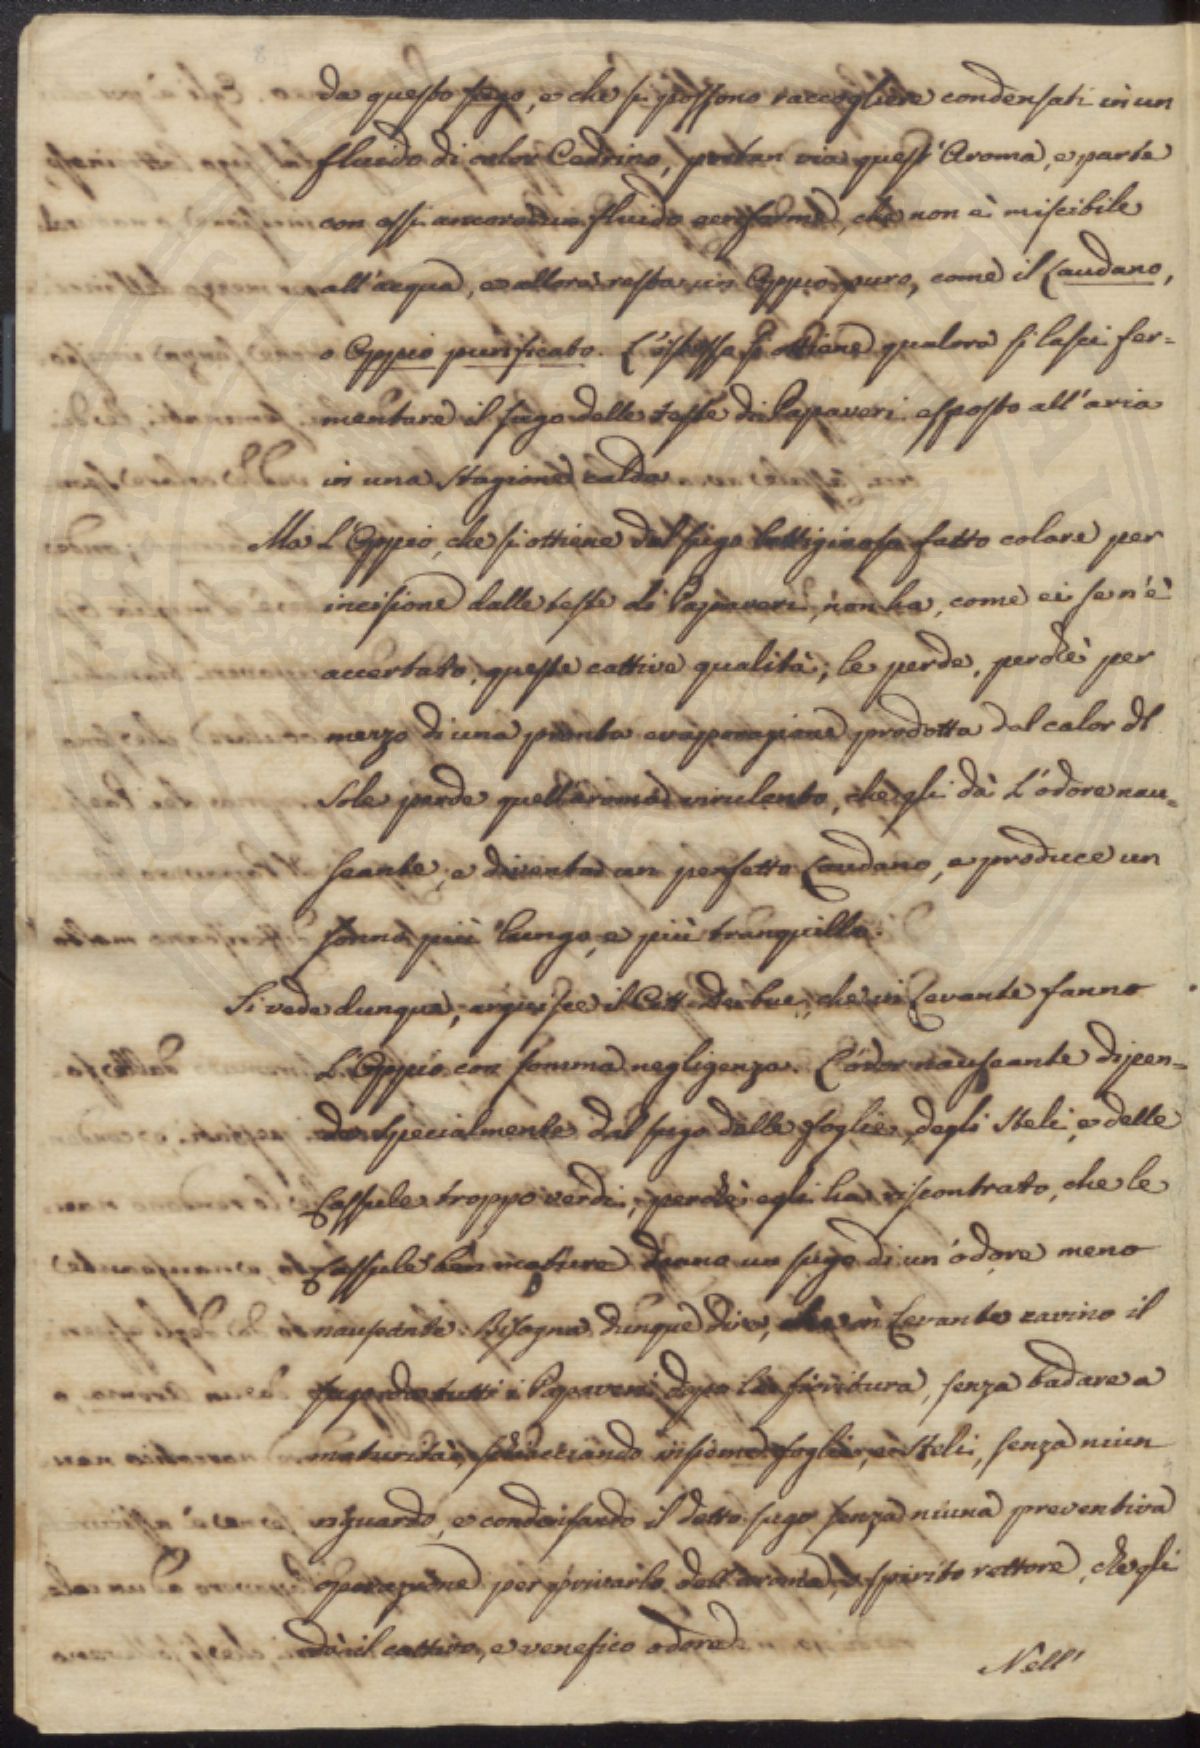 da questo sugo, e che si possono raccogliere condensati in un
fluido di color Cedrino, portan via quest'Aroma, e parte
con essi ancora un fluido aeriforme, che non è miscibile
all'acqua, e allora resta un Oppio puro, come il Laudano,
o Oppio purificato. L'istesso si ottiene qualora si lasci fer=
mentare il sugo delle teste di Papaveri esposto all'aria
in una stagione calda
Ma l'Oppio, che si ottiene dal sugo lattiginoso fatto colare per
incisione dalle teste di Papaveri, non ha, come ei se n'è
accertato, queste cattive qualità; le perde, perchè per
mezzo di una pronta evaporazione prodotta dal calor del
Sole perde quell'aroma virulento, che gli dà l'odore nau=
seante, e diventa un perfetto Laudano, e produce un
sonno più lungo, e più tranquillo.
Si vede dunque, il Citt. che in Levante fanno
l'Oppio con somma negligenza. L'odor nauseante dipen=
de specialmente dal sugo delle foglie, degli Steli, e delle
Cassule troppo verdi, perchè egli ha riscontrato, che le
Cassule ben mature danno un sugo di un'odore meno
nauseante. Bisogna dunque dire, che in Levante cavino il
sugo da tutti i Papaveri dopo la fioritura, senza badare a
maturità, insieme foglie, e Steli, senza niun
riguardo, e condensando il detto sugo senza niuna preventiva
operazione per privarlo dell'aroma, o spirito rettore, che gli
dà il cattivo, e venefico odore.
Nell'